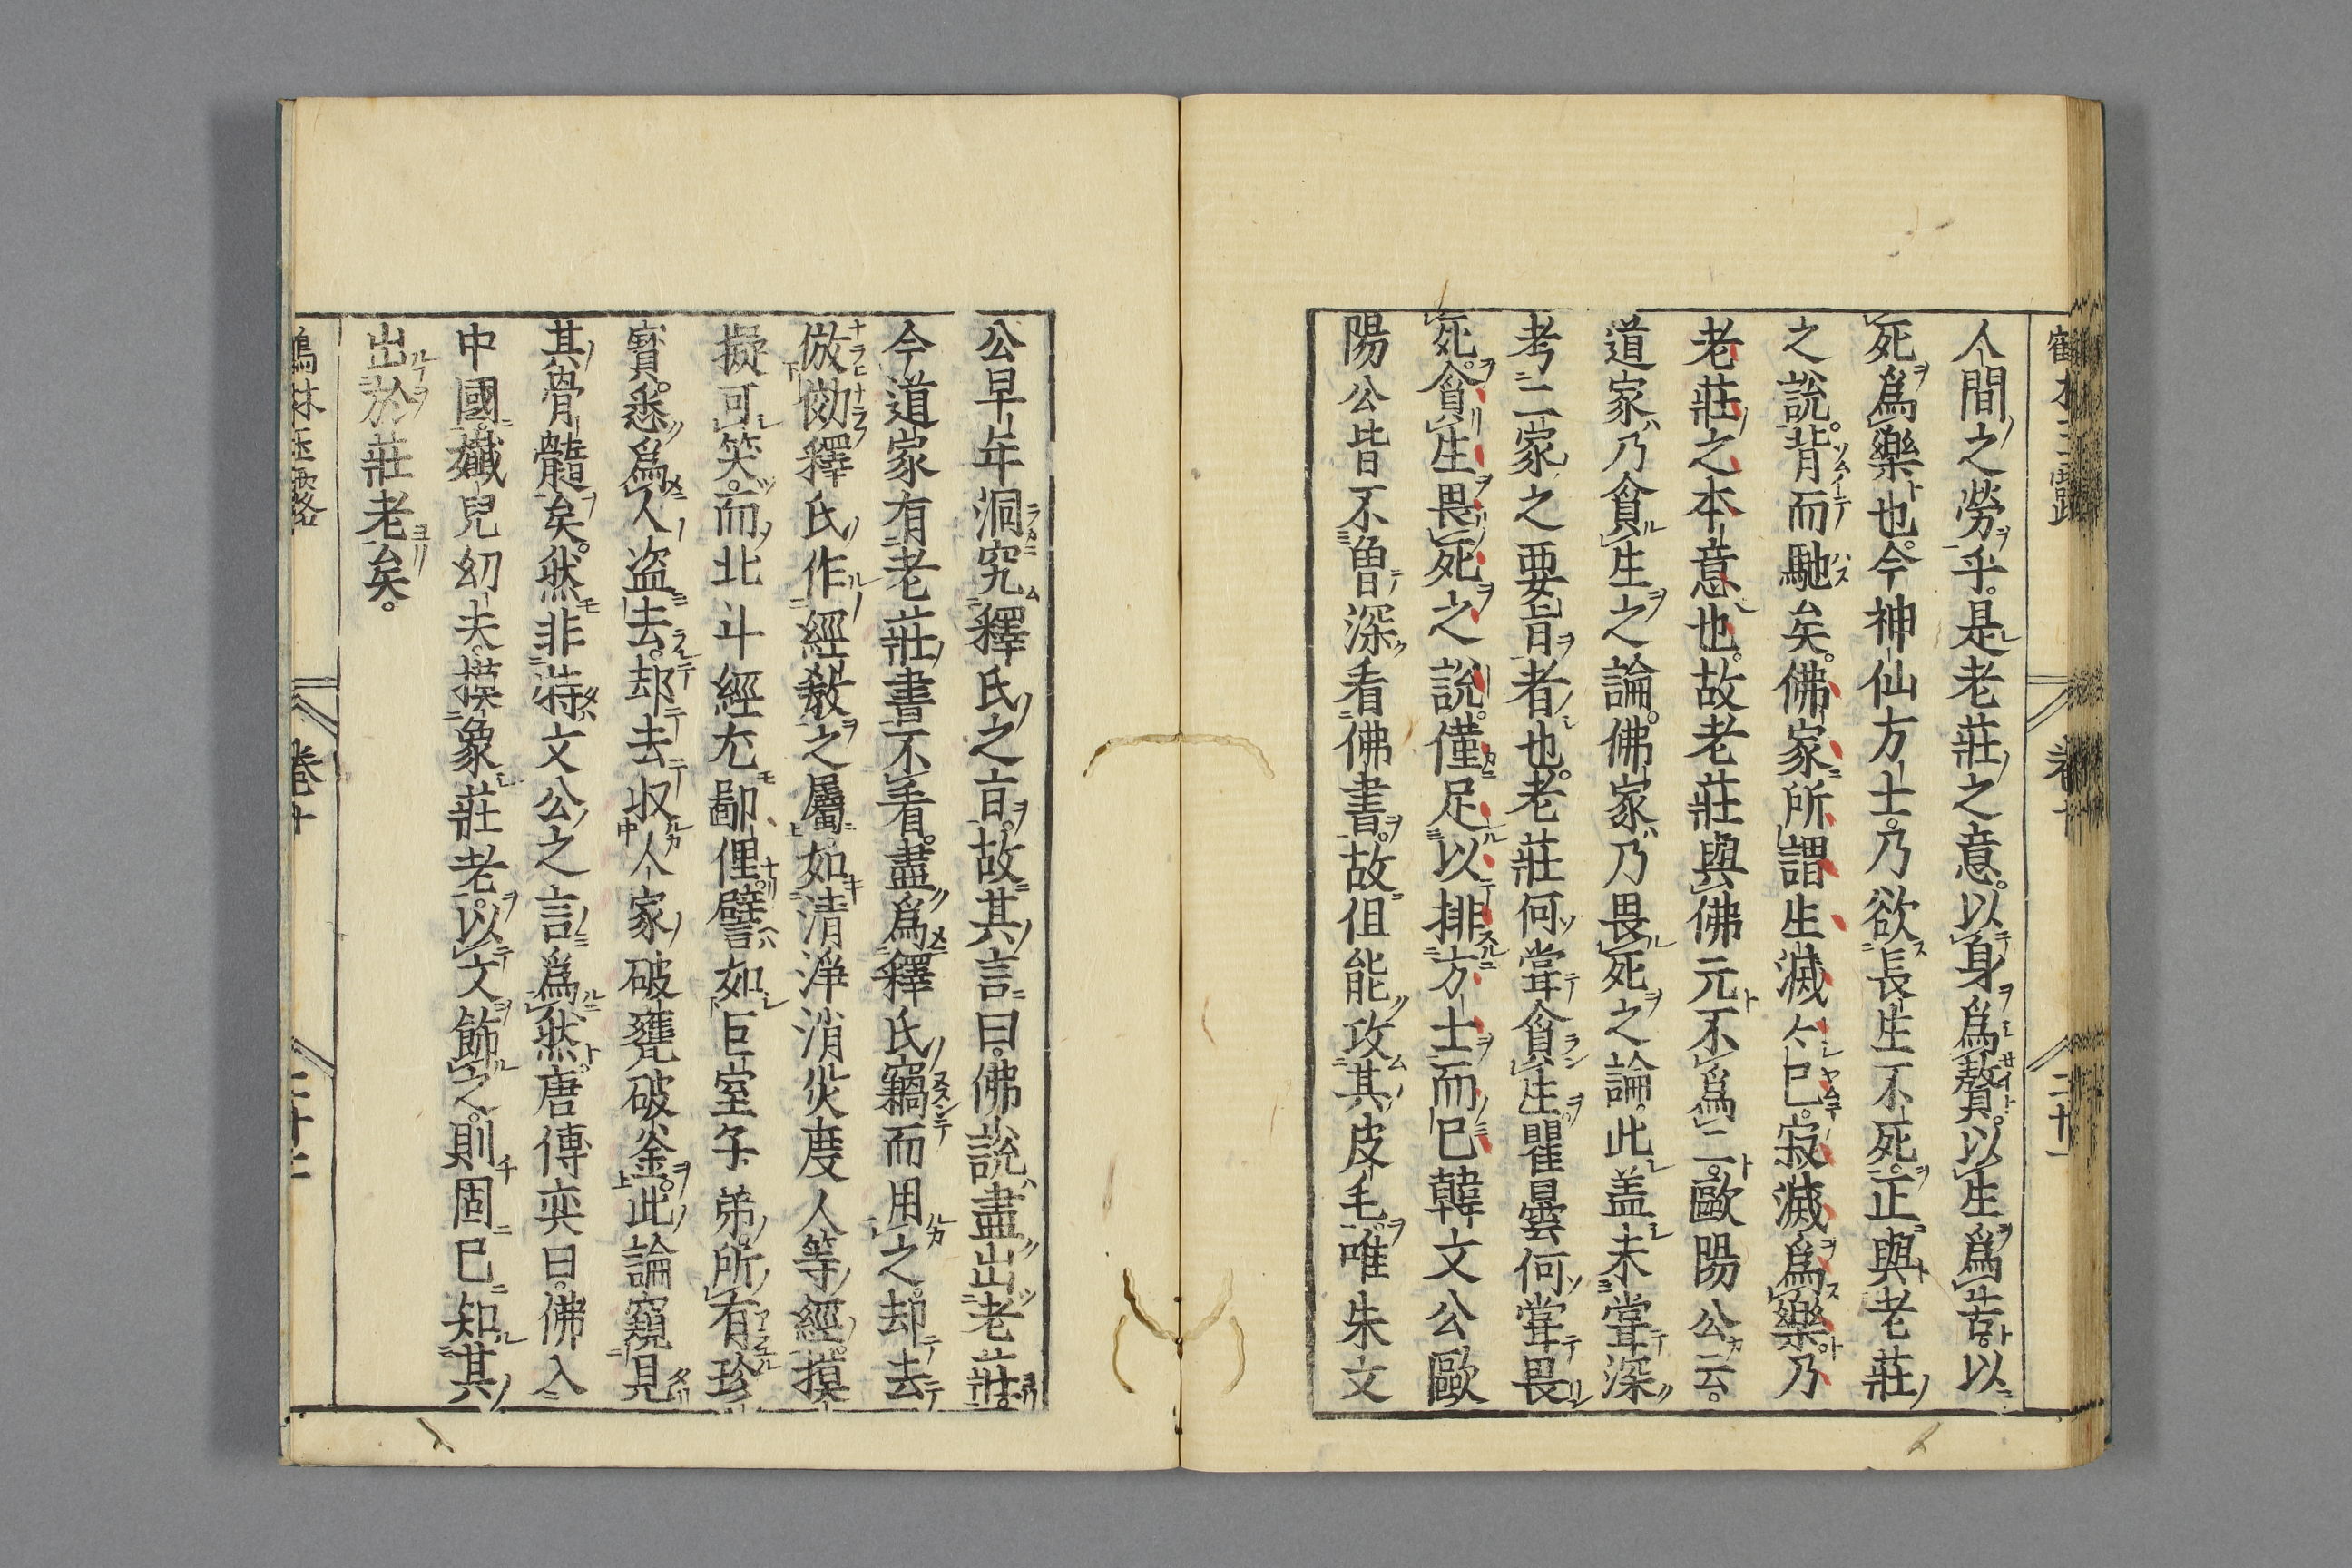 人間之勞乎。是老莊之意。以身爲贅。以生爲苦。以
死爲樂也。今神仙方士。乃欲長生不死。正與老莊
之說。背而馳矣。佛家所謂生滅々已。寂滅爲樂。乃
老莊之本意也。故老莊與佛元不爲二。歐陽公云。
道家乃貪生之論。佛家乃畏死之論。此盖未甞深
考二家之要旨者也。老莊何甞貪生。瞿曇何甞畏
死。貪生畏死之說。僅足以排方士而已。韓文公歐
陽公皆不曾深看佛書。故但能攻其皮毛。唯朱文
公早年洞究釋氏之旨。故其言曰。佛說盡出老莊。
今道家有老莊書不看。盡爲釋氏竊而用之。却去
倣傚釋氏作經敎之屬。如清淨消災度人等經。摸
擬可笑。而北斗經尤鄙俚。譬如巨室子弟。所有珍
寳。悉爲人盜去。却去収人家破甕破釜。此論窺見
其骨髓矣。然非特文公之言爲然。唐傳奕曰。佛入
中國。孅兒幻夫。摸象莊老。以文飾之。則固已知其
出於莊老矣。
卷十